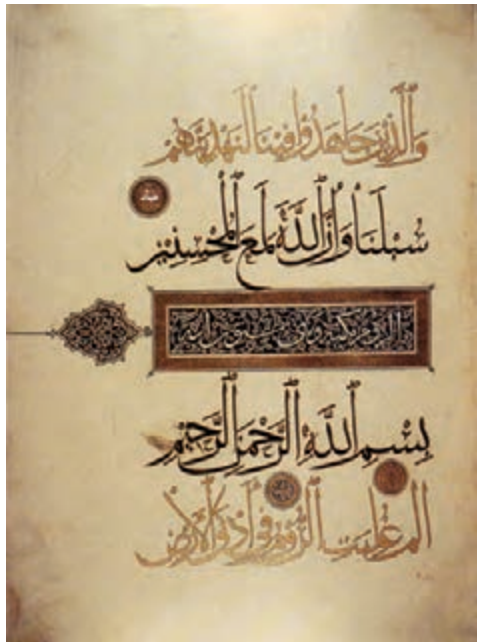 وَالَّذِينَ جَاهَدُوا فِينَا لَنَهْدِيَنَّهُمْ
سُبُلَنَا وَإِنَّ اللَّهَ لَمَعَ الْمُحْسِنِينَ
سورة الروم
بِسْمِ اللَّهِ الرَّحْمَنِ الرَّحِيمِ
الم غلبت الروم في أدنى الأرض